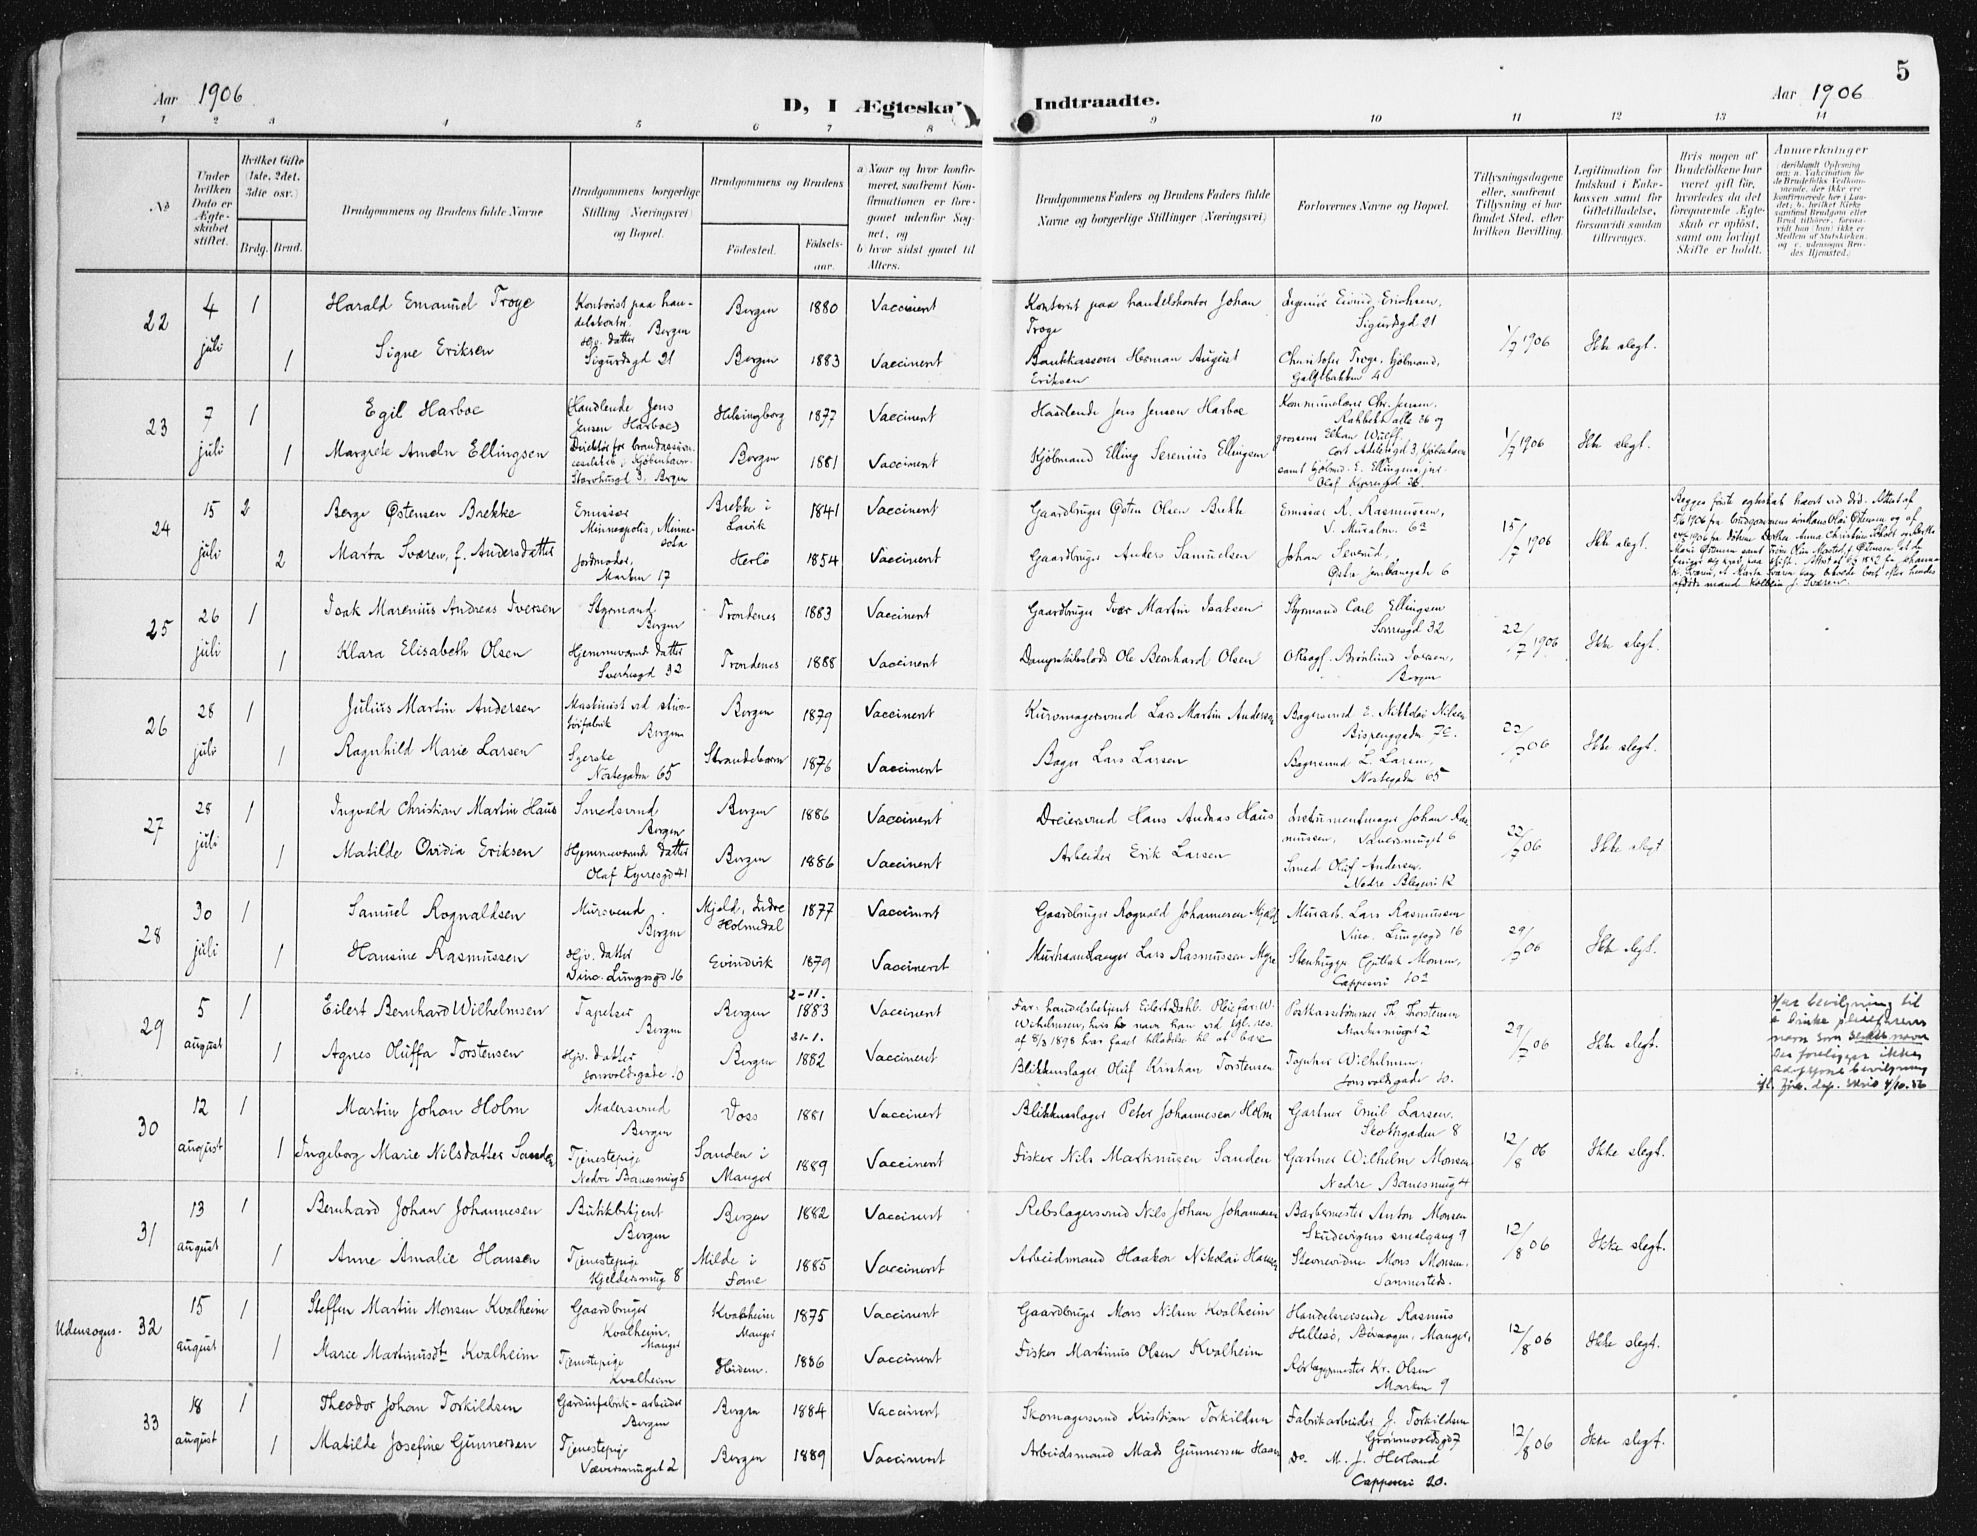 5
Aar 1906
D, I Ægteska
Indtraadte.
Aar 1906
1 2 3 4 5 6 7 8 9 10 11 12 13 14
No
Under hvilken Dato er Ægteskabet stiftet.
Hvilket Gifte (1ste, 2det, 3die osv.)
Brdg. Brud.
Brudgommens og Brudens fulde Navne
Brudgommens borgerlige Stilling (Næringsvei) og Bopæl.
Brudgommens og Brudens
Fødested.
Fødselsaar.
a) Naar og hvor konfirmeret, saafremt Konfirmationen er foregaaet udenfor Sognet, og
b) hvor sidst gaaet til Alters.
Brudgommens Faders og Brudens Faders fulde Navne og borgerlige Stillinger (Næringsvei)
Forlovernes Navne og Bopæl.
Tillysningsdagene eller, saafremt Tillysning ei har fundet Sted, efter hvilken Bevilling.
Legitimation for Indskud i Enkekassen samt for Giftetilladelse, forsaavidt saadan tiltrænges.
Hvis nogen af Brudefolkene har været gift før, hvorledes da det foregaaende Ægteskab er opløst, samt om lovligt Skifte er holdt.
Anmærkninger
22
4 juli
1
Harald Emanuel Troye
Kontorist paa handelskontor. Bergen
Bergen
1880
Vaccinent
Kontorist paa handelskontor Johan Troye
Ingeniør Eivind Erichsen, Sigurdsgd 21
1/7 1906
Ikke slegt.
1
Signe Eriksen
Hjv. datter Sigurdsgd 21
Bergen
1883
Vaccinent
Bankkasserer Herman August Eriksen
Christofer Troye, kjøbmand, Galgebakken 4
23
7 juli
1
Egil Harboe
Helsingborg
1877
Vaccinent
Handlende Jens Jensen Harboe
1/7 1906
Ikke slegt.
1
Margrete Ameln Ellingsen
Bergen
1881
Vaccinent
Kjøbmand Elling Serenius Ellingsen
24
15 juli
2
Berge Østensen Brekke
Emissær Minneapolis, Minnesota
Brekke i Lavik
1841
Vaccinent
Gaardbruger Østen Olsen Brekke
Emissær R. Rasmussen, V. Muralm. 62
15/7 1906
Ikke slegt.
2
Marta Sværen, f. Andersdatter
Jordmoder, Marken 17
Herlø
1854
Vaccinent
Gaardbruger Anders Samuelsen
Johan Severud, Østre Jernbanegate 6
25
26 juli
1
Isak Marenius Andreas Iversen
Styrmand Bergen
Trondenes
1883
Vaccinent
Gaardbruger Iver Martin Isaksen
Styrmand Carl Ellingsen Sverresgd 32
22/7 1906
Ikke slegt.
1
Klara Elisabeth Olsen
Hjemmeværende datter Sverresgd 32
Trondenes
1888
Vaccinent
Dampskibslods Ole Bernhard Olsen
Brønlund Iversen, Bergen
26
28 juli
1
Julius Martin Andersen
Maskinist ved skotøifabrik Bergen
Bergen
1879
Vaccinent
Kurvmagersvend Lars Martin Andersen
Bagersvend E. Nikkolai Nilsen Bispenggaden 7c.
22/7 06
Ikke slegt.
1
Ragnhild Marie Larsen
Syerske Nøstegaden 65
Strandebarm
1876
Vaccinent
Bager Lars Larsen
Bagersvend L. Larsen, Nøstegaden 65
27
28 juli
1
Ingvald Christian Martin Haus
Smedsvend Bergen
Bergen
1886
Vaccinent
Dreiersvend Hans Andreas Haus
Instrumentmager Johan Rasmussen, Væversmuget 6
22/7 06
Ikke slegt
1
Matilde Ovidia Eriksen
Hjemmeværende datter Olaf Kyrresgd 41
Bergen
1886
Vaccinent
Arbeider Erik Larsen
Smed Olaf Andersen. Nedre Blegevei 12
28
30 juli
1
Samuel Rognaldsen
Mursvend. Bergen
Mjeld, Indre Holmedal
1877
Vaccinent
Gaardbruger Rognald Johannesen Mjeld
Murarb. Lars Rasmussen Vinc. Lungesgd 16
29/7 06
Ikke slegt.
1
Hansine Rasmussen
Hjv. datter Vinc. Lungesgd 16
Evindvik
1879
Vaccinent
Murhaandlanger Lars Rasmussen Myre
Stenhugger Gjetlak Monsen, Cappesvei 10a
29
5 august
1
Eilert Bernhard Wilhelmsen
Tapetser Bergen
Bergen
2-11. 1883
Vaccinent
Far: handelsbetjent Eilert Dahl. Pleiefar: W. Wilhelmsen, hvis navn han ved kgl. res. af 8/3 1898 har faaet tilladelse til at bære
Postkassetømmer Th. Thorstensen Markesmuget 2
29/7 06
Ikke slegt.
Har bevilgning til å bruke pleiefarens navn som slektsnavn
1
Agnes Oluffa Torstensen
Hjv. datter Jonsvoldsgade 10
Bergen
21-1. 1882
Vaccinent
Blikkenslager Oluf Kristian Torstensen
Tapetser Wilhelmsen, Jonsvoldsgade 10.
30
12 august
1
Martin Johan Holm
Malersvend Bergen
Voss
1881
Vaccinent
Blikkenslager Peter Johannesen Holm
Gartner Emil Larsen. Skottegaden 8
12/8 06
Ikke slegt.
1
Ingeborg Marie Nilsdatter Sanden
Tjenestepige Nedre Banesmug 5
Sanden i Manger
1889
Vaccinent
Fisker Nils Martinusen Sanden
Gartner Wilhelm Monsen Nedre Banesmug 4
31
13 august
1
Bernhard Johan Johannesen
Butikbetjent Bergen
Bergen
1882
Vaccinent
Rebslagersvend Nils Johan Johannesen
Barbermester Anton Monsen Skudevigens smalgang 9
12/8 06
Ikke slegt.
1
Anne Amalie Hansen
Tjenestepige Kjeldersmug 8
Milde i Fane
1885
Vaccinent
Arbeidsmand Haakon Nikolai Hansen
Stevnevidne Mons Monsen, Sammesteds.
Udensogns.
32
15 august
1
Steffen Martin Monsen Kvalheim
Gaardbruger Kvalheim, Manger
Kvalheim Manger
1875
Vaccinent
Gaardbruger Mons Nilsen Kvalheim
Handelsreisende Rasmus Hellesø, Bøvaagen, Manger,
12/8 06
Ikke slegt.
1
Marie Martinusdtr Kvalheim
Tjenestepige Kvalheim
Ibidem.
1886
Vaccinent
Fisker Martinus Olsen Kvalheim
Rørlæggermester Kr. Olsen Marken 9
33
18 august
1
Theodor Johan Torkildsen
Gardinfabrik-arbeider Bergen
Bergen
1884
Vaccinent
Skomagersvend Kristian Torkildsen
Fabrikarbeider J. Torkildsen Grønnevoldsgd 7
12/8 06
Ikke slegt.
1
Matilde Josefine Gunnersen
Tjenestepige Væversmuget 2
Bergen
1889
Vaccinent
Arbeidsmand Mads Gunnersen Haan
Do. M. J. Herland Cappesvei 20.